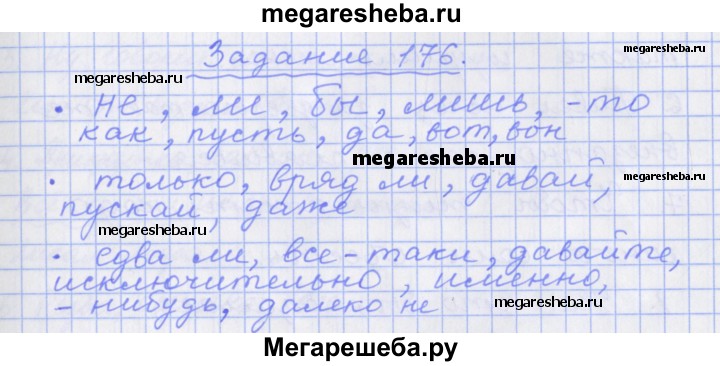 megaresheba.ru
Задание 176.
megaresheba.ru
megaresheba.ru
• Не, ли, бы, лишь, -то
как, пусть, да, вот, вон
megaresheba.ru
• только, вряд ли, давай,
megaresheba.ru
пускай, даже
megaresheba.ru
• едва ли, все-таки, давайте,
исключительно, именно,
-нибудь, далеко не
megaresheba.ru
Мегарешеба.ру